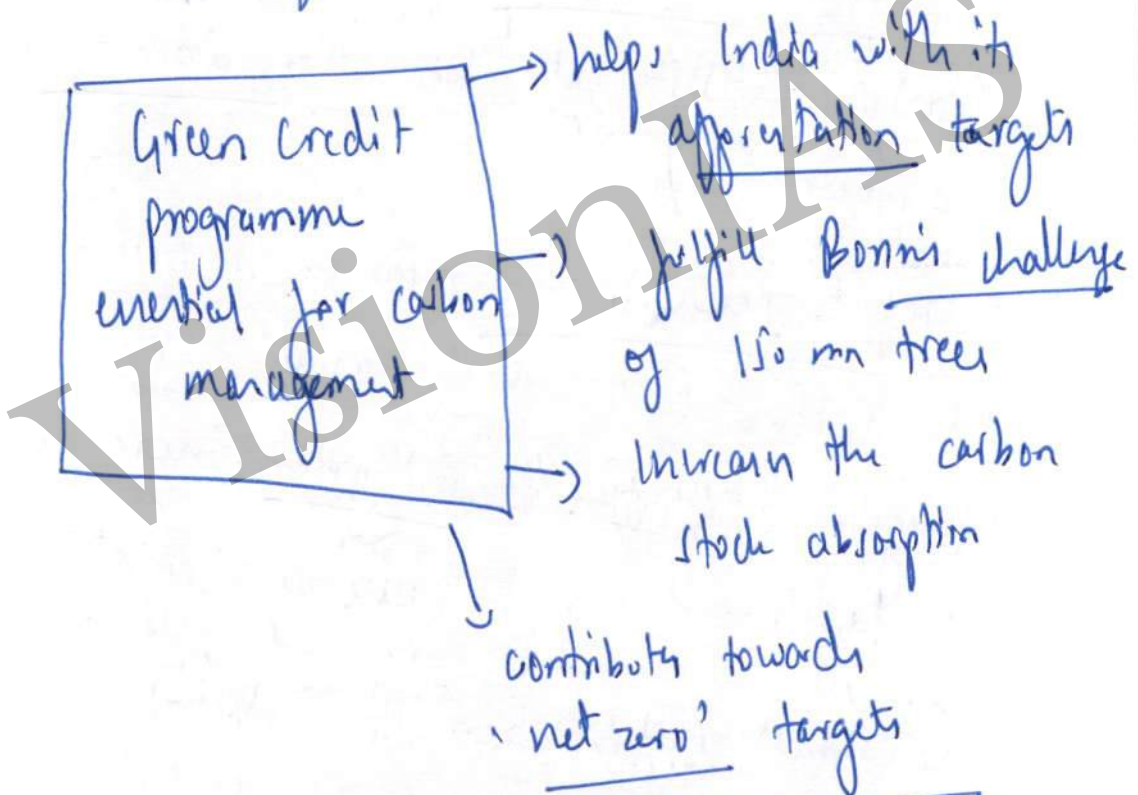 Green Credit
programme
essential for carbon
management
→ helps India with its
afforestation targets
→ fulfill Bonn's challenge
of 150 mn trees
→ Increase the carbon
stock absorption
contributes towards
'net zero' targets
VisionIAS